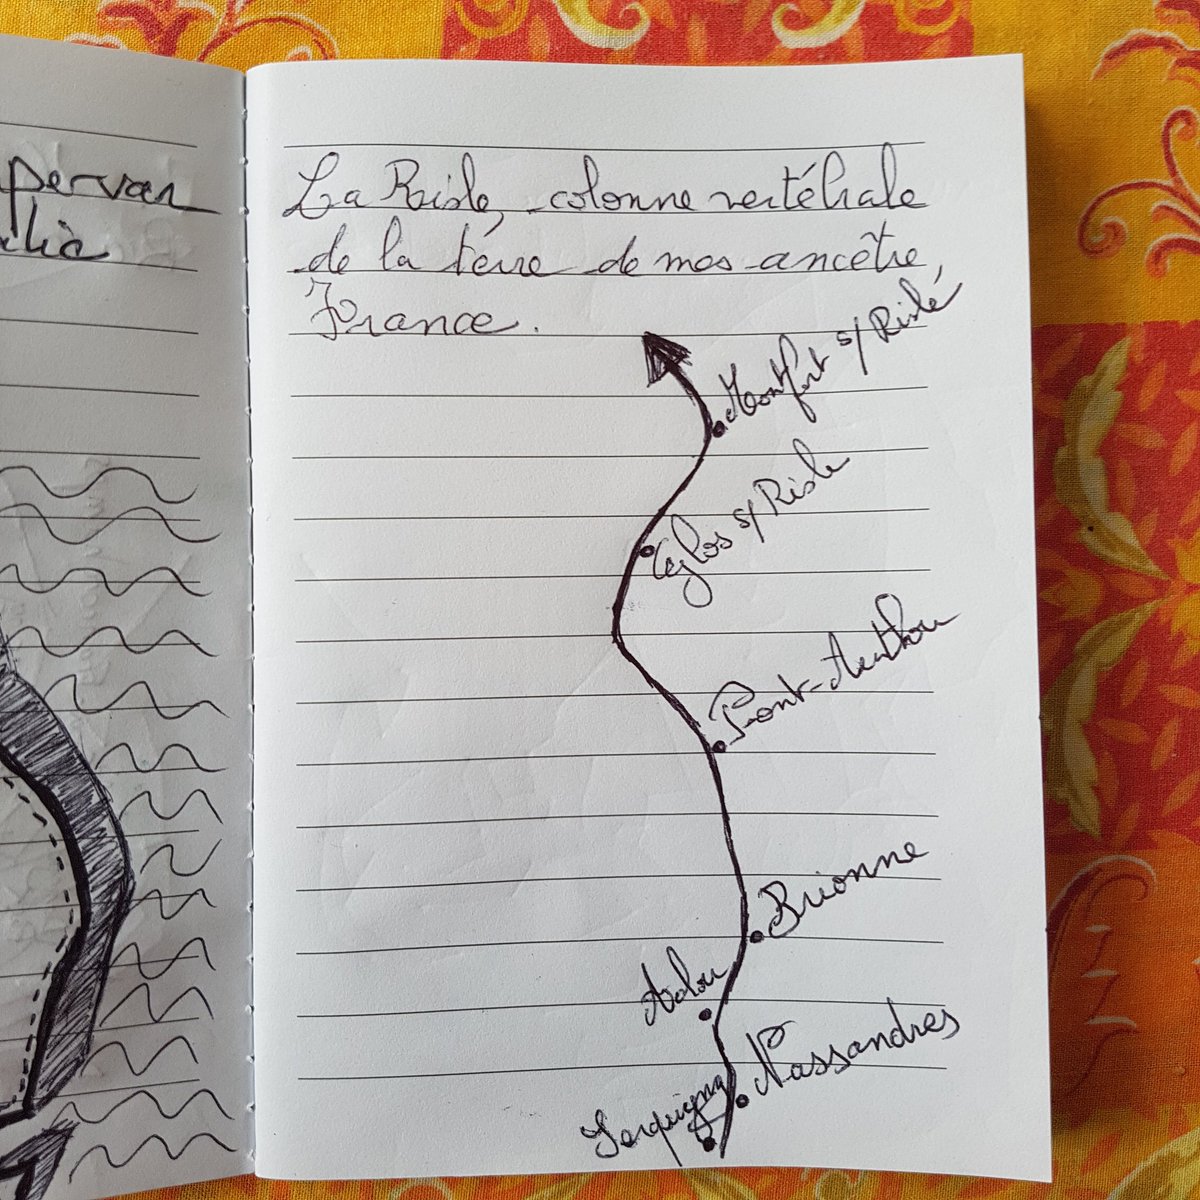 pervan
La Risle, colonne vertébrale
de la terre de mes ancêtre,
France.
Montfort s/ Risle
Eglos s/ Risle
Pont-Authou
Brionne
Aclou
Nassandres
Serquigny